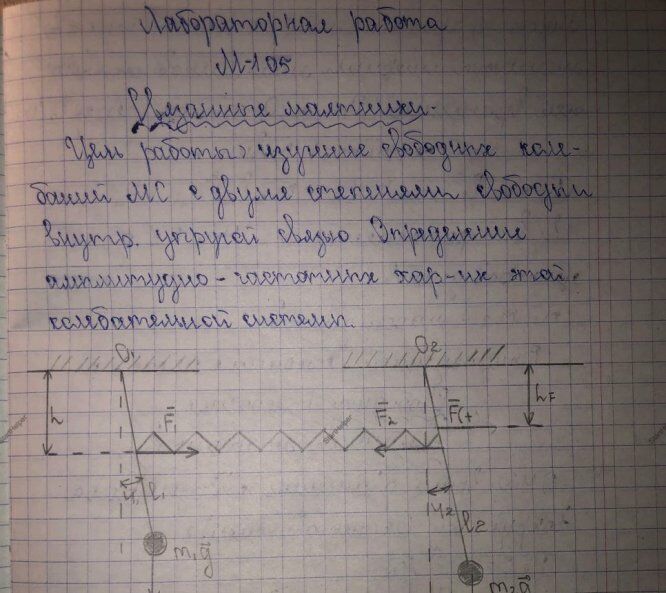 Лабораторная работа
М-105
Связанные маятники.
Цель работы: изучение свободных коле-
баний МС с двумя степенями свободы и
внутр. упругой связью. Определение
амплитудно-частотных хар-ик этой
колебательной системы.
O₁ O₂
h F̄₁ F̄₂ F̄(t h_F
φ₁ l₁ φ₂ l₂
m₁ḡ
m₂ḡ